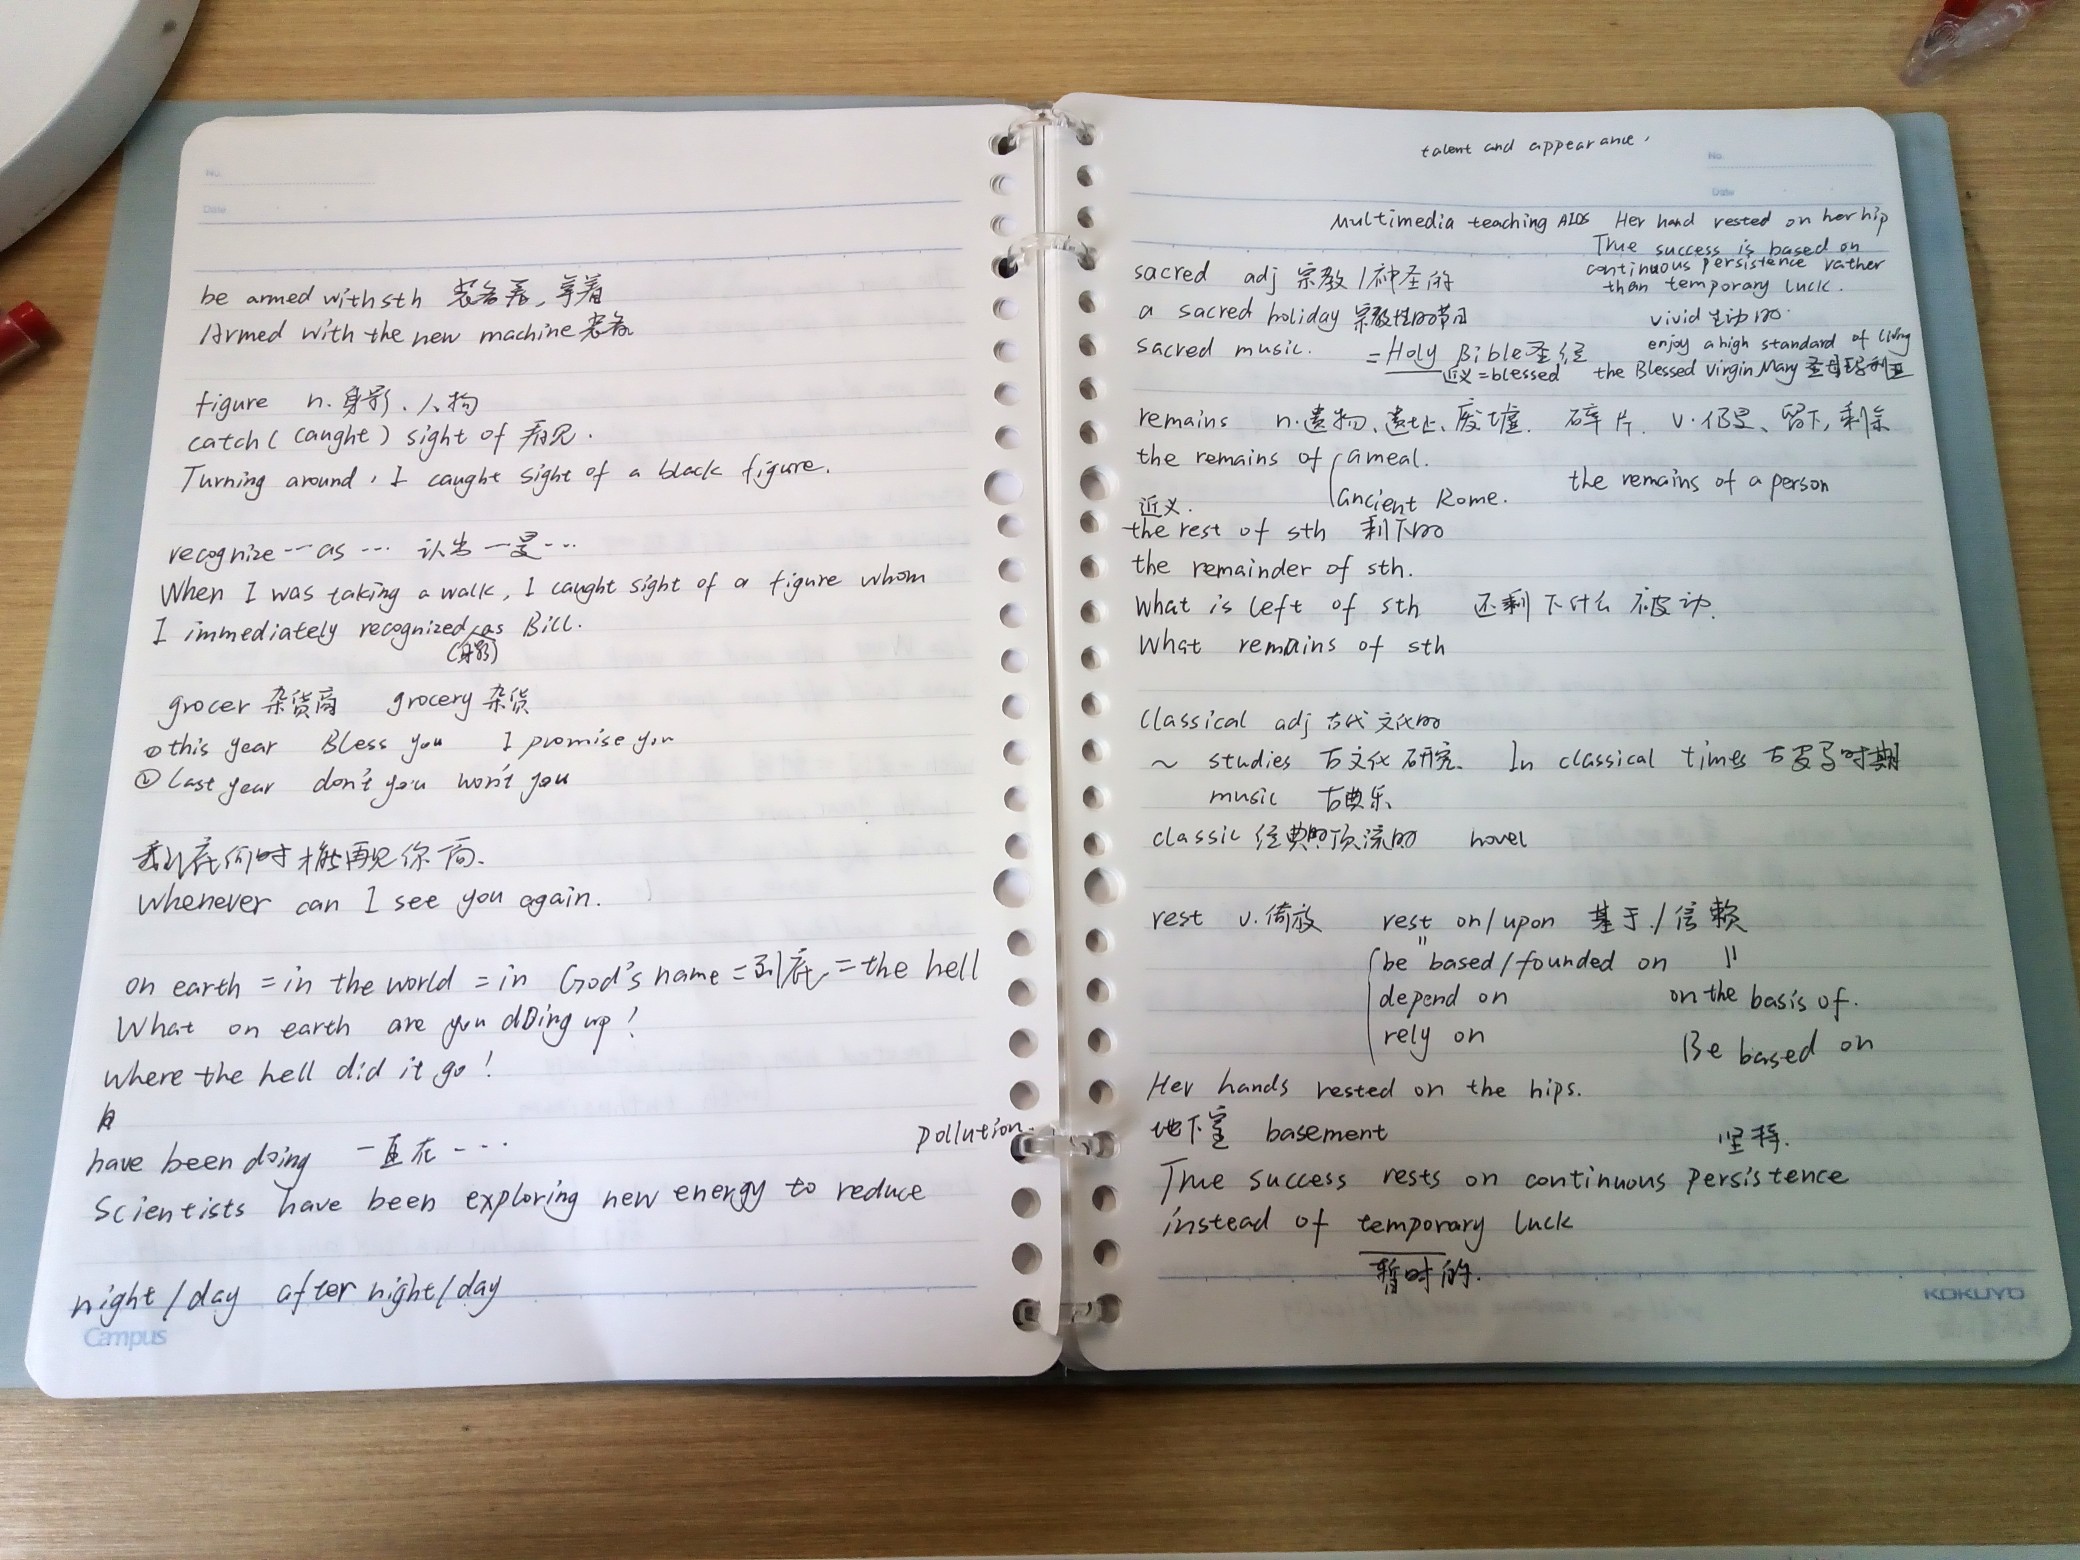 No.
Date
be armed with sth 装备着,拿着
Armed with the new machine 装备
figure n.身影、人物
catch( caught ) sight of 看见.
Turning around, I caught sight of a black figure.
recognize --- as --- 认出一是---
When I was taking a walk, I caught sight of a figure whom
I immediately recognized as Bill.
(身影)
grocer 杂货商 grocery 杂货
① this year Bless you I promise you
② Last year don't you won't you
我到底何时才能再见你一面.
Whenever can I see you again.
on earth = in the world = in God's name = 到底 = the hell
What on earth are you doing up!
Where the hell did it go!
have been doing 一直在---
pollution.
Scientists have been exploring new energy to reduce
night/day after night/day
Campus
talent and appearance.
No.
Date
Multimedia teaching AIDS Her hand rested on her hip
True success is based on
continuous persistence rather
than temporary luck.
sacred adj 宗教/神圣的
a sacred holiday 宗教性的节日
vivid 生动的.
sacred music. = Holy Bible 圣经
enjoy a high standard of living
近义=blessed the Blessed Virgin Mary 圣母玛利亚
remains n.遗物、遗址、废墟. 碎片. v.仍是、留下,剩余
the remains of { a meal.
ancient Rome. the remains of a person
近义.
the rest of sth 剩下的
the remainder of sth.
What is left of sth 还剩下什么 被动.
What remains of sth
Classical adj 古代文化的
~ studies 古文化研究. In classical times 古罗马时期
music 古典乐
classic 经典的顶流的 novel
rest v.倚放 rest on/upon 基于./信赖
be based/founded on
depend on on the basis of.
rely on Be based on
Her hands rested on the hips.
地下室 basement 坚持.
True success rests on continuous persistence
instead of temporary luck
暂时的.
KOKUYO